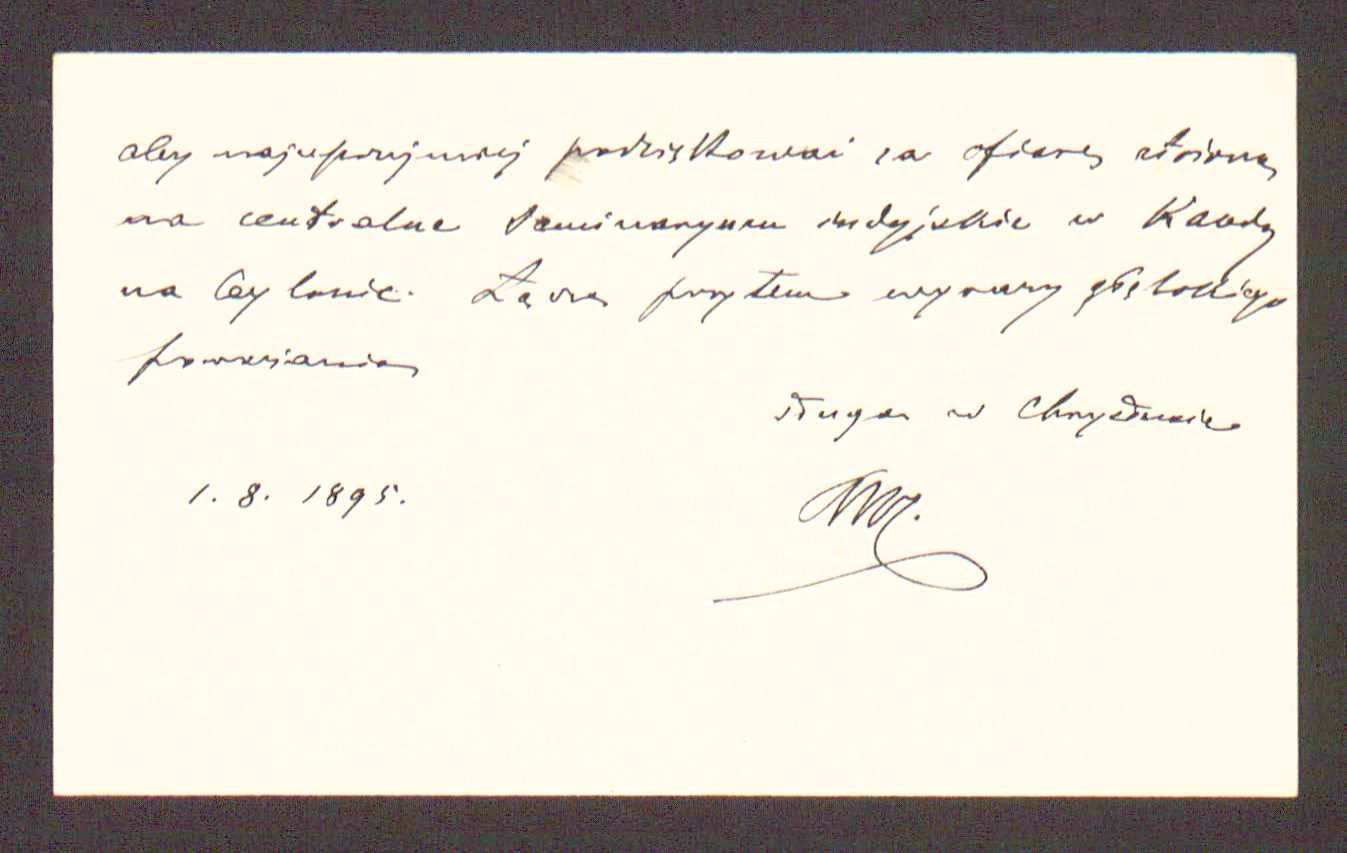 aby najuprzejmiej podziękować za ofiarę złożoną
na centralne Seminaryum indyjskie w Kandy
na Ceylonie. Łączę przytem wyrazy głębokiego
poważania
sługa w Chrystusie
1. 8. 1895.